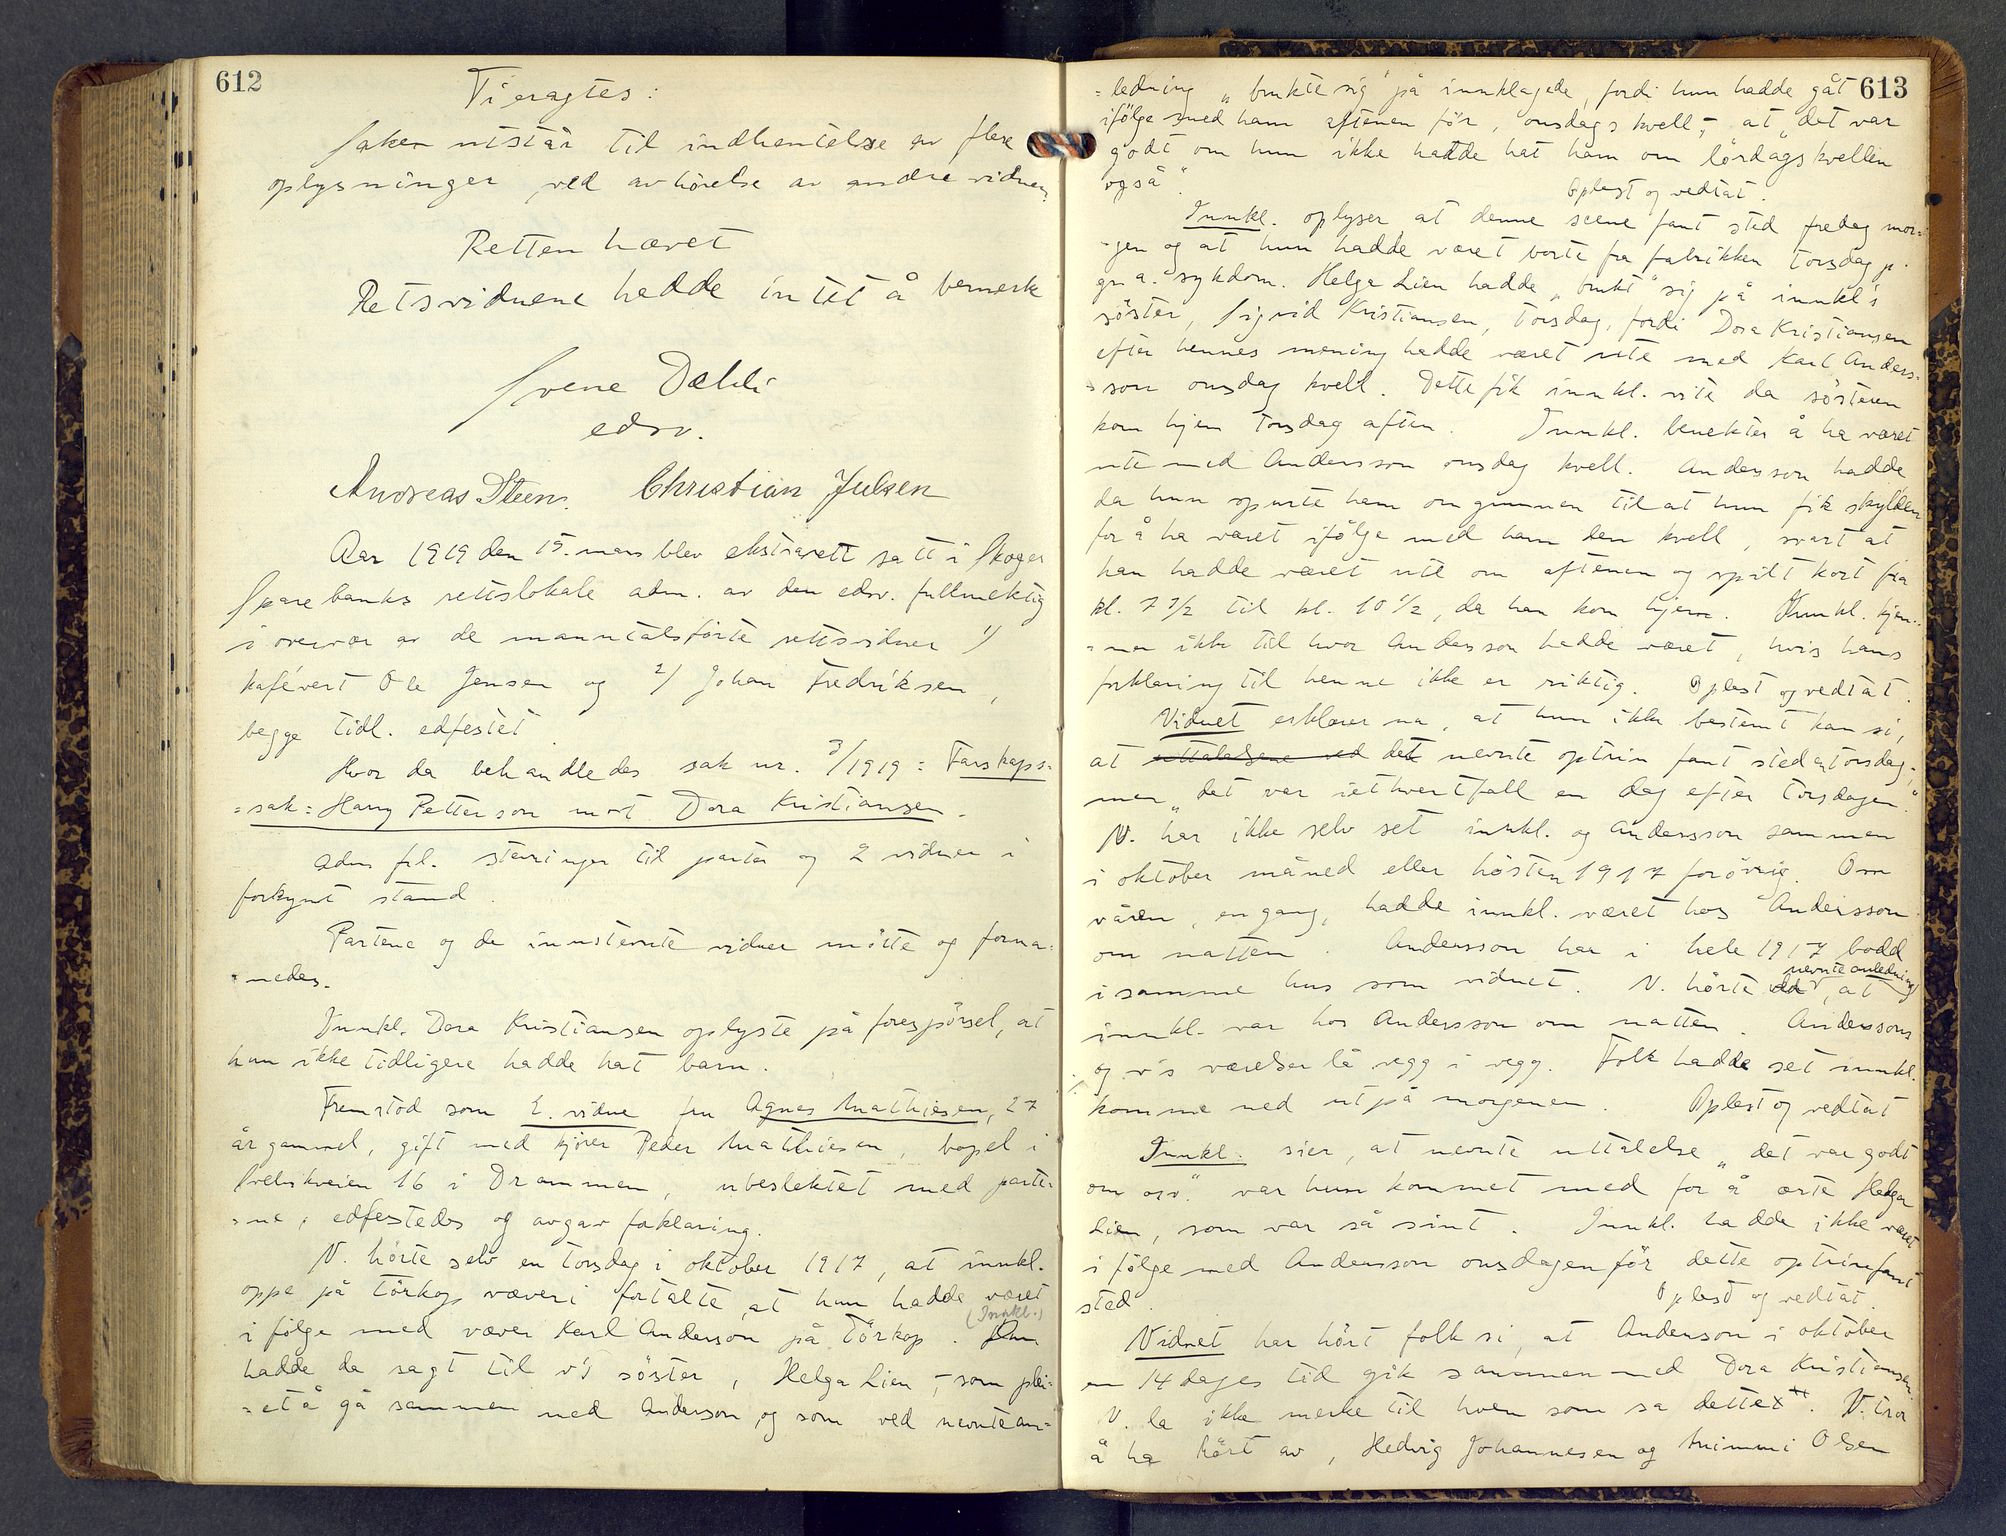 612
Tieragtes:
Saken utstår til indhentelse av flere
oplysninger ved avhörelse av andre vidner.
Retten hævet
Retsvidnene hadde intet å bemerke
edsv.
Andreas Steen. Christian Julsen
Aar 1919 den 15. mars blev ekstrarett satt i Skoger
Sparebanks rettslokale adm. av den edsv. fullmektig
i overvær av de manntalsförte rettsvidner 1)
kafévert Ole Jensen og 2) Johan Fredriksen,
begge tidl. edfestet.
Hvor da behandledes sak nr. 3/1919 = Farskaps=
=sak = Harry Petterson mot Dora Kristiansen.
Adm. frl. stevninger til parter og 2 vidner i
forkynt stand.
Partene og de innstevnte vidner mötte og forma=
=nedes.
Innkl. Dora Kristiansen oplyste på forespörsel, at
hun ikke tidligere hadde hat barn.
Fremstod som 1. vidne fru Agnes Mathiesen, 27
år gammel, gift med kjörer Peder Mathiesen, bopel i
16 i Drammen, ubeslektet med parte=
=ne; edfestedes og avgav forklaring.
V. hörte selv en torsdag i oktober 1917, at innkl.
oppe på Törkop væveri fortalte, at hun hadde været
i fölge med væver Karl Anderson på Törkop. Hun (Innkl.)
hadde da sagt til v's söster, Helga Lien,- som plei=
=et å gå sammen med Anderson, og som ved nevnte an=
613
=ledning „brukte sig" på innklagede, fordi hun hadde gåt
ifölge med ham aftenen för, onsdags kvell,- at „det var
godt om hun ikke hadde hat ham om lördagskvellen
også". Oplest og vedtat.
Innkl. oplyser at denne scene fant sted fredag mor=
=gen og at hun hadde været borte fra fabrikken torsdag p.
gr. a. sykdom. Helga Lien hadde „brukt" sig på innkl's
söster, Sigrid Kristiansen, torsdag, fordi Dora Kristiansen
efter hennes mening hadde været ute med Karl Anders=
=son onsdag kvell. Dette fik innkl. vite da sösteren
kom hjem torsdag aften. Innkl. benekter å ha været
ute med Andersson onsdag kvell. Andersson hadde
da hun spurte ham om grunnen til at hun fik skylden
for å ha været ifölge med ham den kvell, svart at
han hadde været ute om aftenen og spilt kort fra
kl. 7 1/2 til kl. 10 1/2, da han kom hjem. Innkl. kjen=
=ner ikke til hvor Andersson hadde været, hvis hans
forklaring til henne ikke er riktig. Oplest og vedtat.
Vidnet erklærer nu, at hun ikke bestemt kan si,
at uttalelsene ved det nevnte optrin fant sted en torsdag;
men „det var iethvertfall en dag efter torsdagen."
V. har ikke selv set innkl. og Andersson sammen
i oktober måned eller hösten 1917 forövrig. Om
våren, en gang, hadde innkl. været hos Andersson
om natten. Andersson har i hele 1917 bodd
i samme hus som vidnet. V. hörte ved nevnte anledning, at
innkl. var hos Andersson om natten. Anderssons
og v's værelser lå vegg i vegg. Folk hadde set innkl.
komme ned ut på morgenen. Oplest og vedtat
Innkl. sier, at nevnte uttalelse „det var godt
om osv." var hun kommet med for å ærte Helga
Lien, som var så sint. Innkl. hadde ikke været
i fölge med Andersson onsdagen för dette optrin fant
sted. Oplest og vedtat.
Vidnet har hört folk si, at Anderson i oktober
en 14 dages tid gik sammen med Dora Kristiansen.
V. la ikke merke til hvem som sa dette x). V. tror
å ha hört av, Hedvig Johannesen og Mimmi Olsen